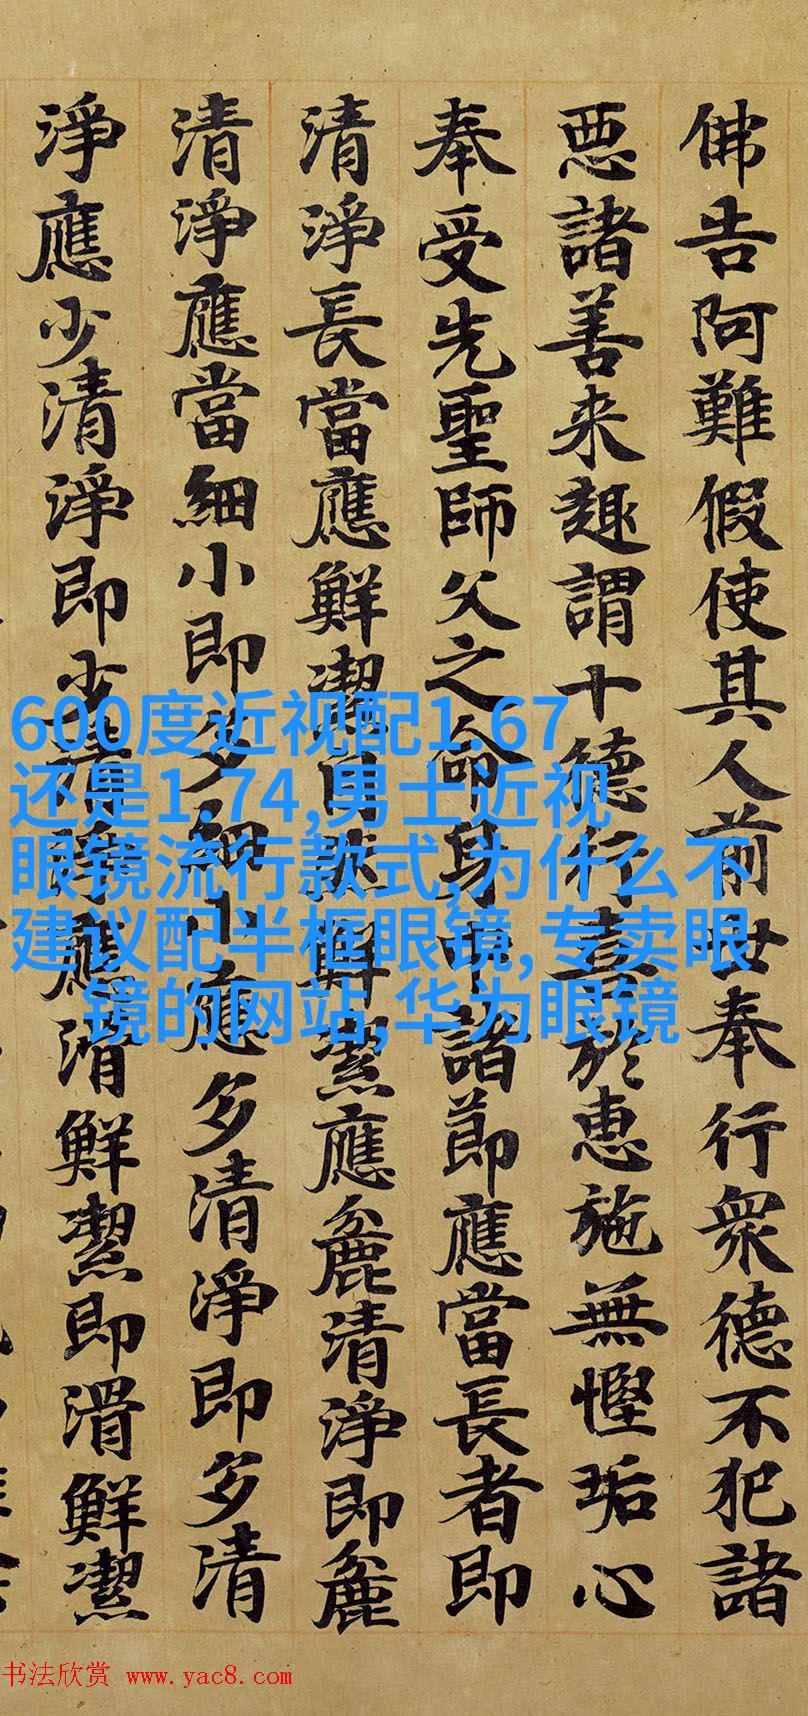 佛告阿難假使其人前世奉行衆德不犯諸
惡諸善来趣謂十德行至於惠施無慳垢心
奉受先聖師父之命身中諸節應當長者即
清淨長當應鮮潔自然鮮潔應麁清淨即麁
清淨應當細小即多細小應多清淨即多清
淨應少清淨即少清淨應滑鮮潔即滑鮮潔
600度近视配1.67
还是1.74,男士近视
眼镜流行款式,为什么不
建议配半框眼镜,专卖眼
镜的网站,华为眼镜
书法欣赏 www.yac8.com